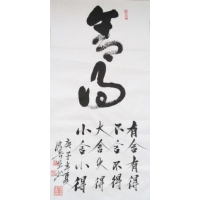 舍得
有舍有得
不舍不得
大舍大得
小舍小得